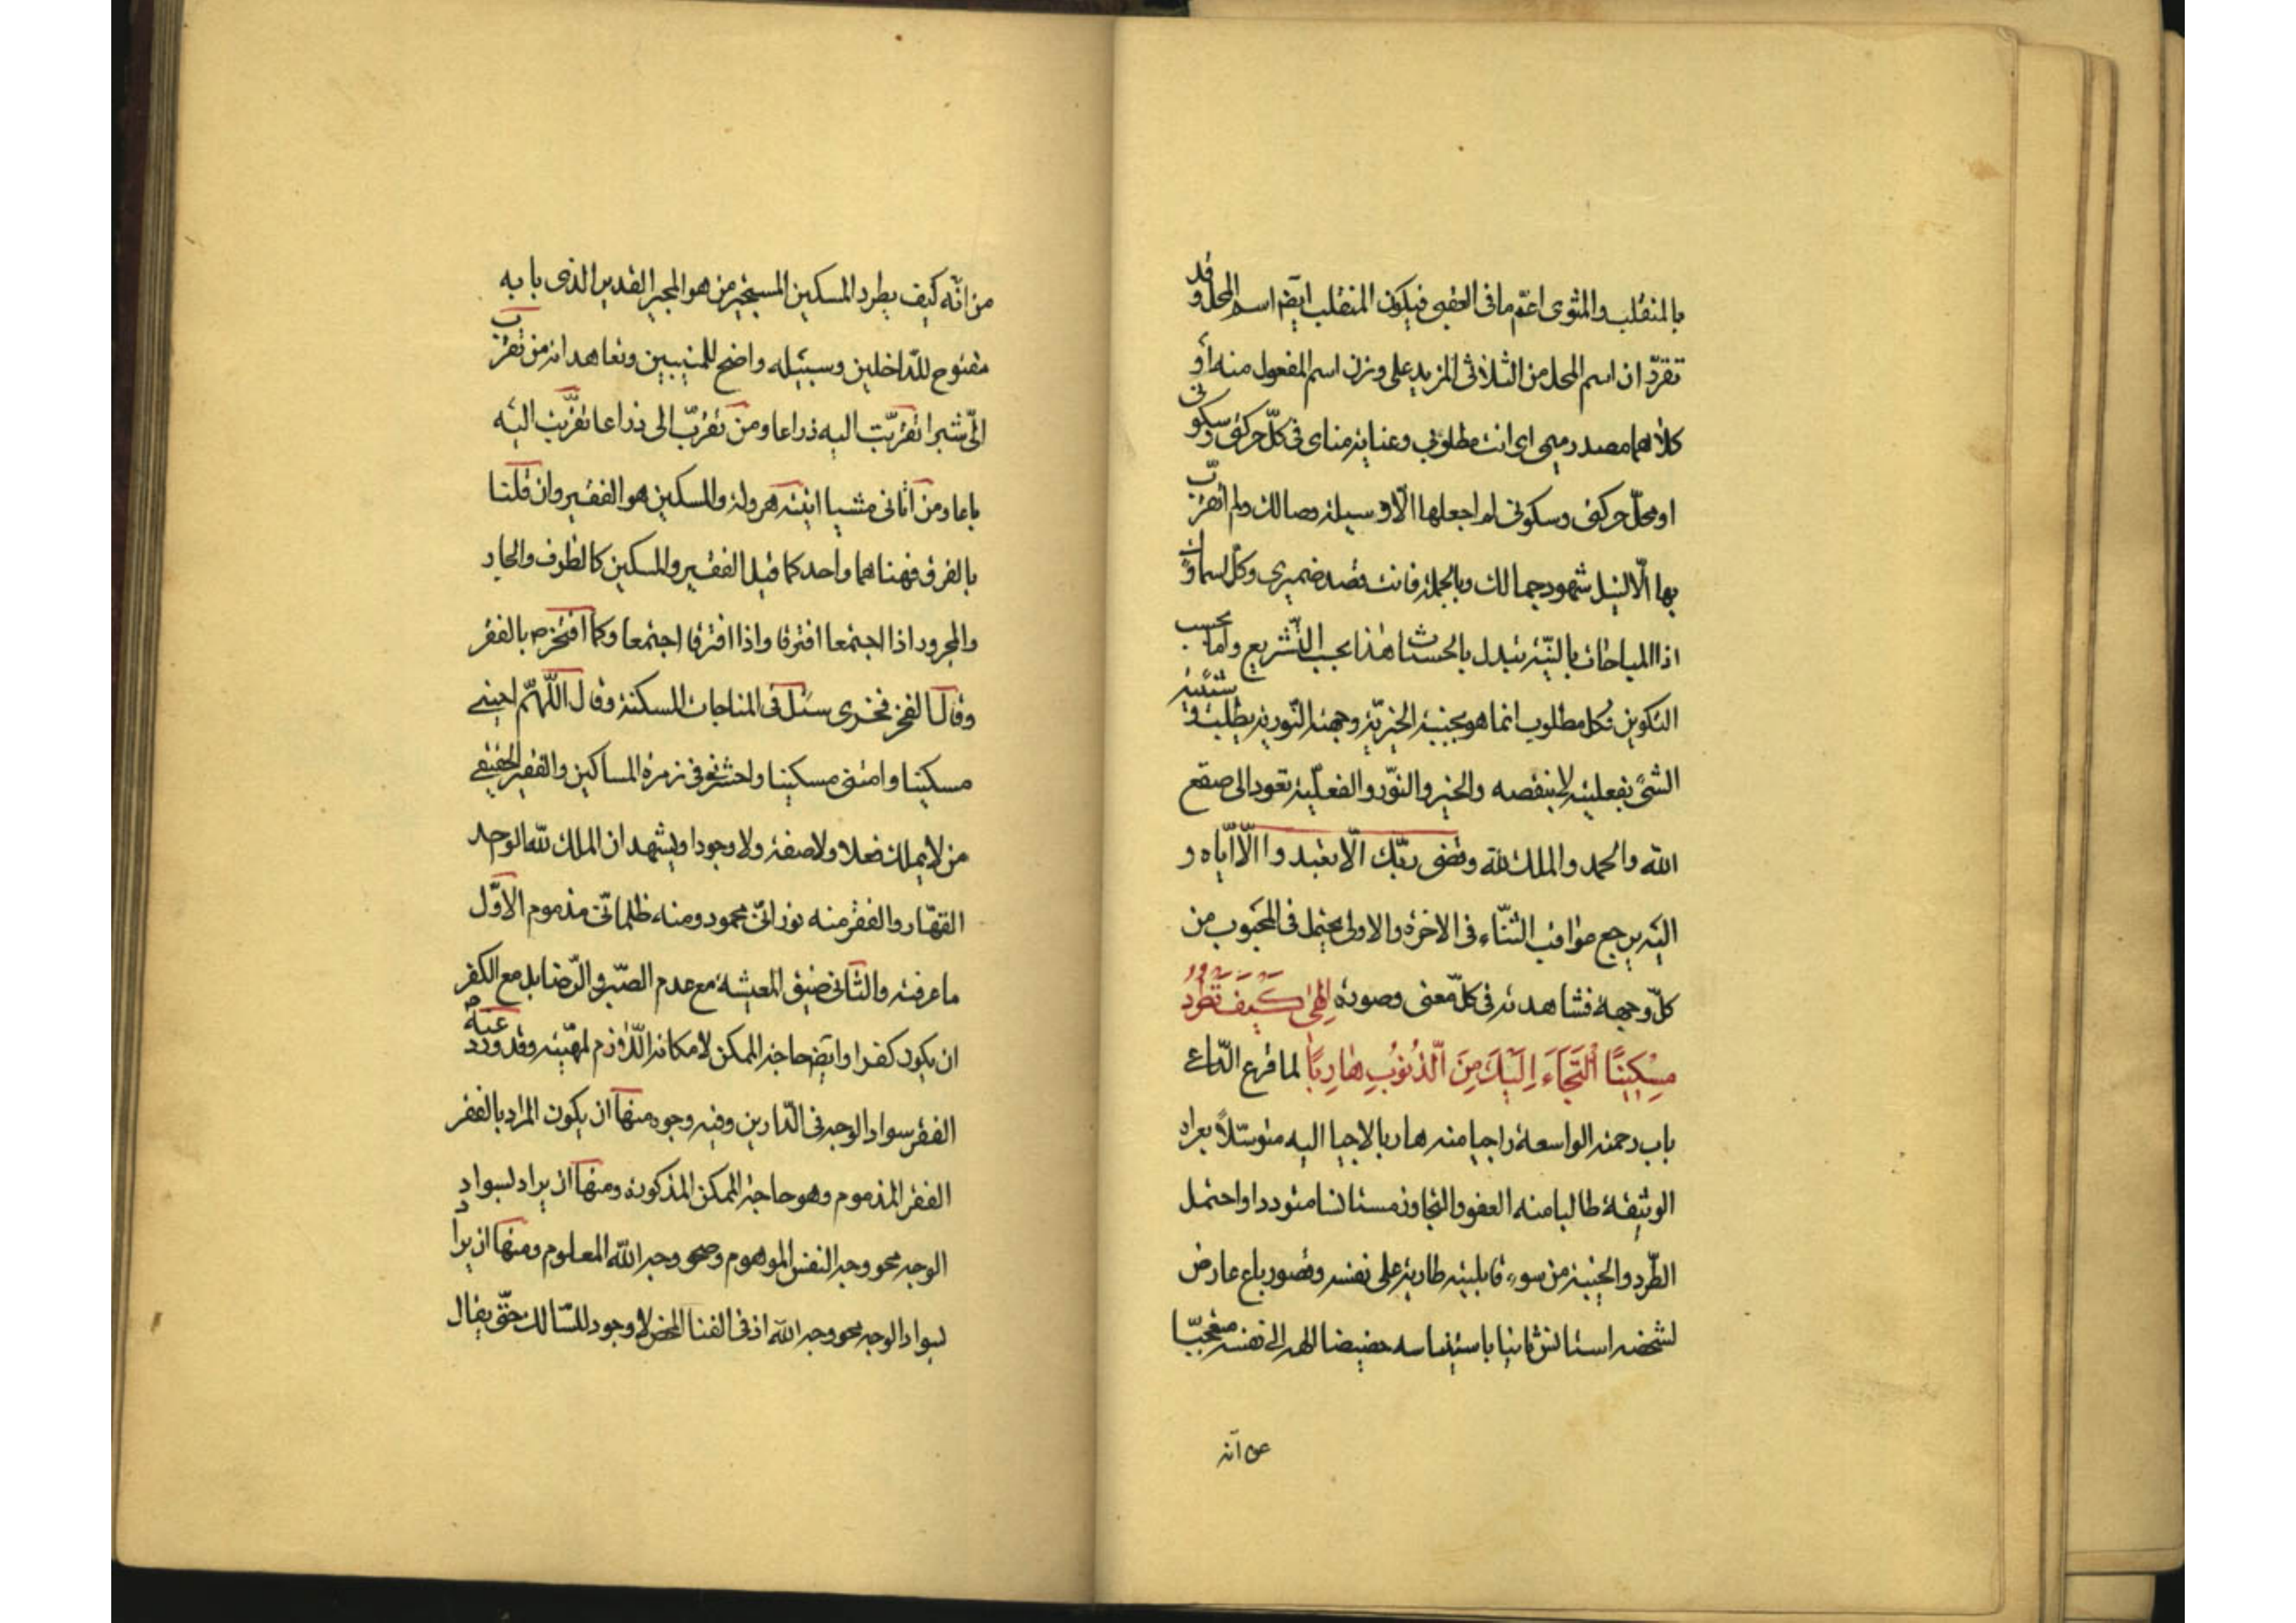 بالمنقلب والمثوى اعمّ مما فى العقبى فيكون المنقلب ايضا اسم المحل وقد
تقرّر ان اسم المحل من الثلاثى المزيد على وزن اسم المفعول منه او
كلاهما مصدر ميمى اى انت مطلوبى وغاية مناى فى كلّ حركتى وسكونى
او محلّ حركتى وسكونى لم اجعلها الّا وسيلة وصالك ولم اتقرّب
بها الّا لنيل شهود جمالك وبالجملة فانت قصد ضميرى وكل
اذا المباحات بالنيّة تبدل بالحسنات هذا بحسب التّشريع واما بحسب
التكوين فكل مطلوب انما هو بجنبته الخيريّة وجهته النّورية يطلب وشيئية
الشئ بفعليته لا بنقصه والخير والنّور والفعليّة تعود الى صقع
الله والحمد والملك لله وقضى ربّك الّا تعبدوا الّا ايّاه و
اليه يرجع عواقب الثّناء فى الاخرة والاولى يحتمل فى المحبوب من
كلّ وجهة فشاهدته فى كلّ معنى وصورة الهى كَيْفَ تَطْرُدُ
مِسْكِينًا الْتَجَاَءَ اِلَيْكَ مِنَ الّذُنُوُبِ هارِبًا لما قرع الدّاعى
باب رحمته الواسعة راجيا منه هاربا لاجيا اليه متوسّلاً بعراه
الوثيقة طالبا منه العفو والتجاوز مستانسا متوددا واحتمل
الطّرد والخيبة من سوء قابليته طارية على نفسه وقصور باع عارض
لشخصه استانس ثانيا باستيناسه الى نفسه متعجبّا
من انّه
من انّه كيف يطرد المسكين المستجير من هو المجير القدير الذى بابه
مفتوح للدّاخلين وسبيله واضح للمنيبين وتعاهد انه من تقرّب
الىّ شبرا تقرّبت اليه ذراعا ومن تقرّب الى ذراعا تقرّبت اليه
باعا ومن اتانى مشيا اتيته هرولة والمسكين هو الفقير وان قلنا
بالفرق فههنا هما واحد كما قيل الفقير والمسكين كالظرف والجار
والمجرور اذا اجتمعا افترقا واذا افترقا اجتمعا وكما افتخر ص بالفقر
وقال الفقر فخرى سئل فى المناجات المسكنة وقال اللّهمّ احينى
مسكينا وامتنى مسكينا واحشرنى فى زمرة المساكين والفقير الحقيقى
من لا يملك فعلا ولا صفة ولا وجودا ويشهد ان الملك لله الواحد
القهّار والفقر منه نورانىّ محمود ومنه ظلمانىّ مذموم الاوّل
ما عرفته والثّانى ضيق المعيشة مع عدم الصّبر والرّضا بل مع الكفر
ان يكون كفرا وايضا حاجة الممكن لامكانه اللّازم لمهيّته وقد ورد عنه ص
الفقر سواد الوجه فى الدّارين وفيه وجوه منها ان يكون المراد بالفقر
الفقر المذموم وهو حاجة الممكن المذكورة ومنها ان يراد بسواد
الوجه محو وجه النفس الموهوم وصحو وجه الله المعلوم ومنها ان يراد
بسواد الوجه محو وجه الله اذ فى الفنا المحض لا وجود للسّالك حتّى يقال